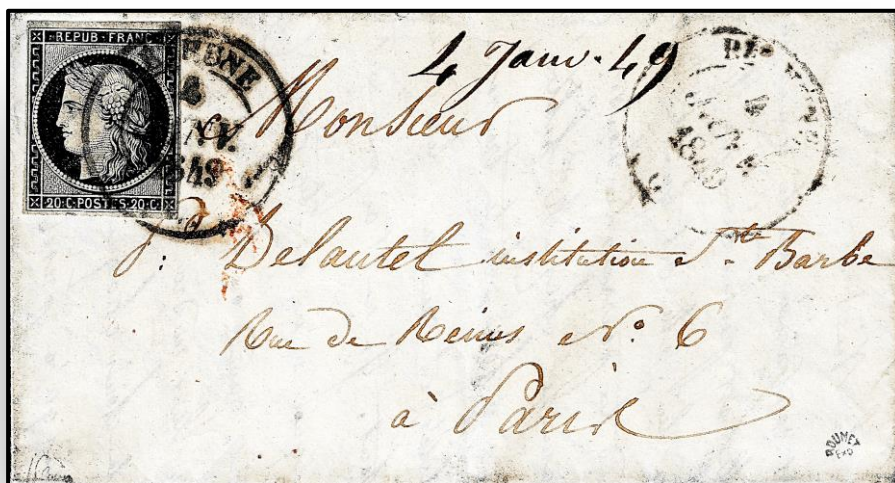 REPUB·FRANC
20·C·POSTES·20·C
4
1849
4 Janv. 49
4
JANV.
1849
Monsieur
Delautel institution Ste Barbe
Rue de Reims No. 6
à Paris
ROUMET
EXP